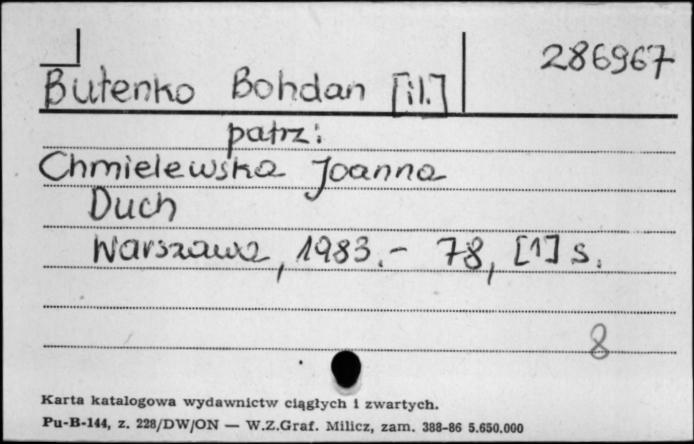 286967
Butenko Bohdan [il.]
patrz:
Chmielewska Joanna
Duch
Warszawa, 1983.- 78, [1] s.
8
Karta katalogowa wydawnictw ciągłych i zwartych.
Pu-B-144, z. 228/DW/ON — W.Z.Graf. Milicz, zam. 388-86 5.650.000